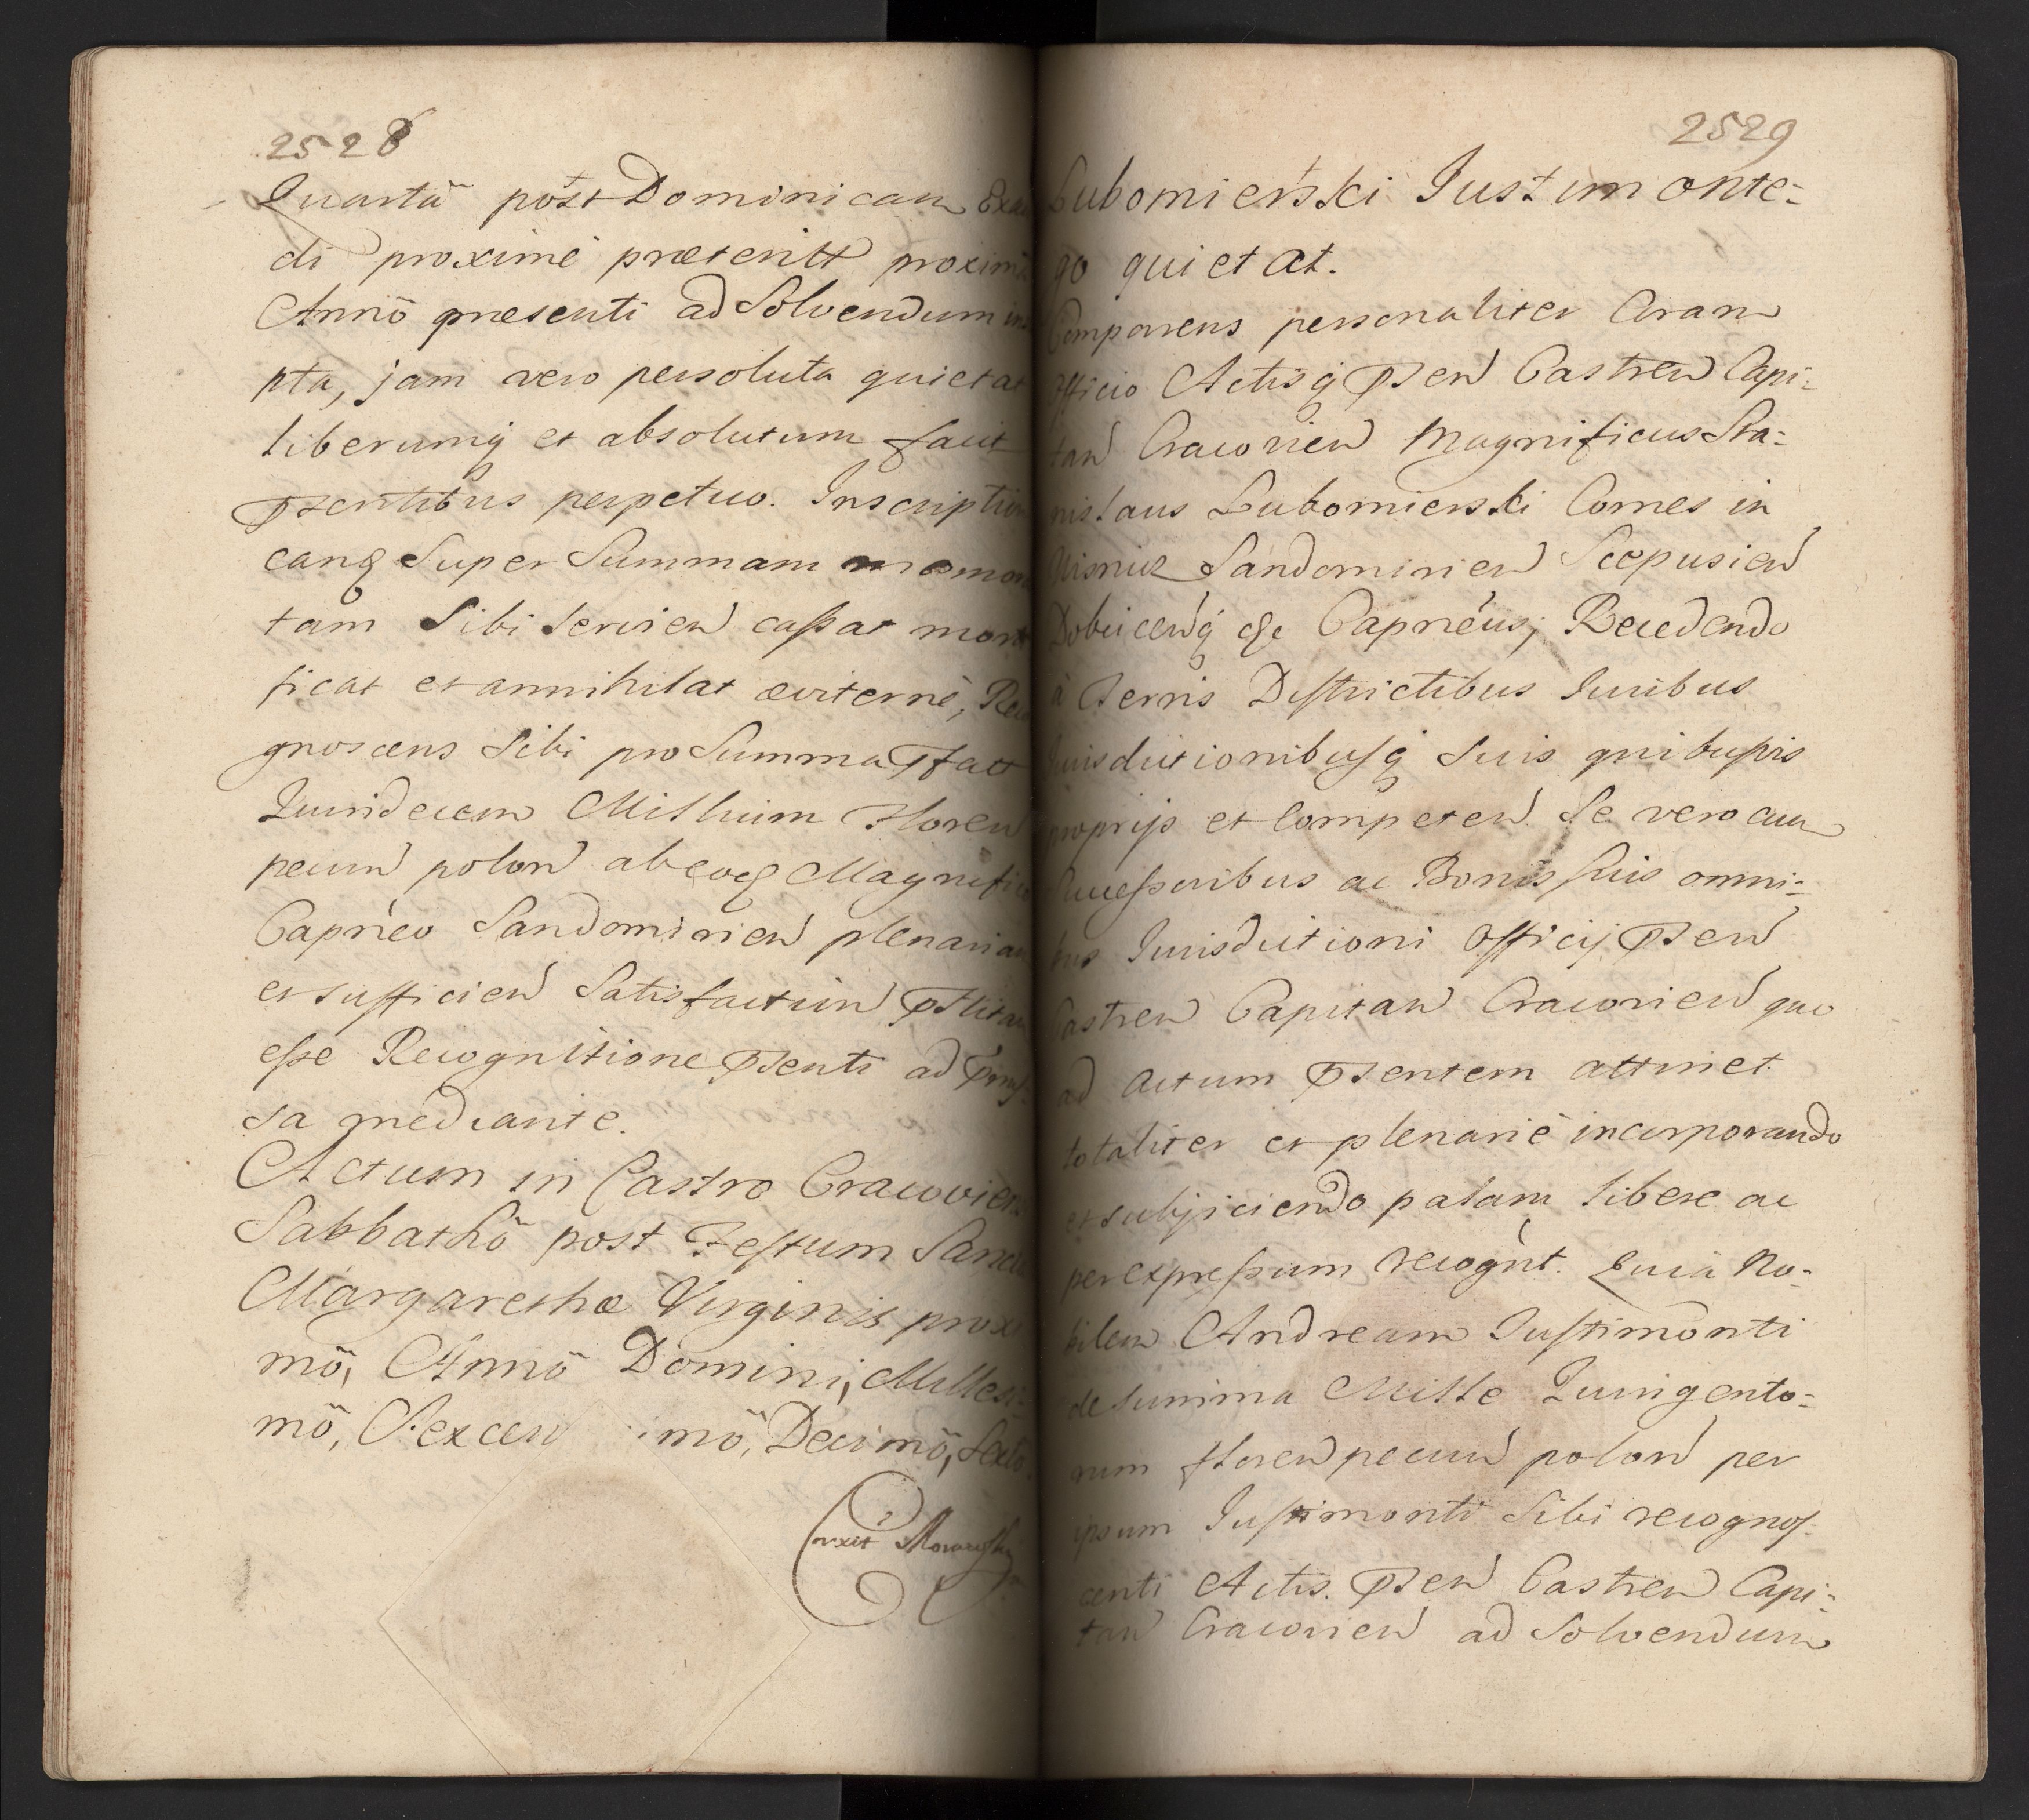 2528
Quartâ post Dominicam Exau
di proximé præteritt proximâ
Annô præsenti ad Solvendum in
pta, jam vero persoluta quietat
liberumq et absolutum facit
Psentibus perpetuo. Inscription
eanq Super Summam memora
tam Sibi Servien cassat morti
ficat et annihilat æviternè, Reco
gnoscens Sibi pro Summa Pfatt
Quindecem Millium Floren
pecun polon ab eoq Magnifico
Capnéo Sandomirien plenariam
et sufficien Satisfactiin Pstitam
esse Recognitione Psenti ad Pmis
sa mediante.
Actum in Castro Cracovien:
Sabbathô post Festum Sanctæ
Margarethæ Virginis proxi
mô, Annô Domini, Millesi-
mô, Sexcen mô, Decimô, Sexto.
Corxit
2529
Lubomierski Justimonte-
go quietat.
Comparens personaliter Coram
Officio Actisq Psen Castren Capi-
tan Cracovien Magnificus Sta-
nislaus Lubomierski Comes in
Wisnicz Sandomirien Scepusien
Dobcicenq &c Capnéus, Recedendo
à Terris Districtibus Juribus
Jurisdictionibusq Suis quibusvis
proprijs et Competen Se vero cum
Successoribus ac Bonis suis omni-
bus Jurisdictioni Officij Psen
Castren Capitan Cracovien quo
ad Actum Psentem attinet
totaliter et plenariè incorporando
et subjiciendo palam libere ac
per expressum recognt. Quia No-
bilem Andream Justimonti
de Summa Mille Quingento-
rum floren pecun polon per
ipsum Justimonti Sibi recognos-
centi Actis. Psen Castren Capi-
tan Cracovien ad Solvendum